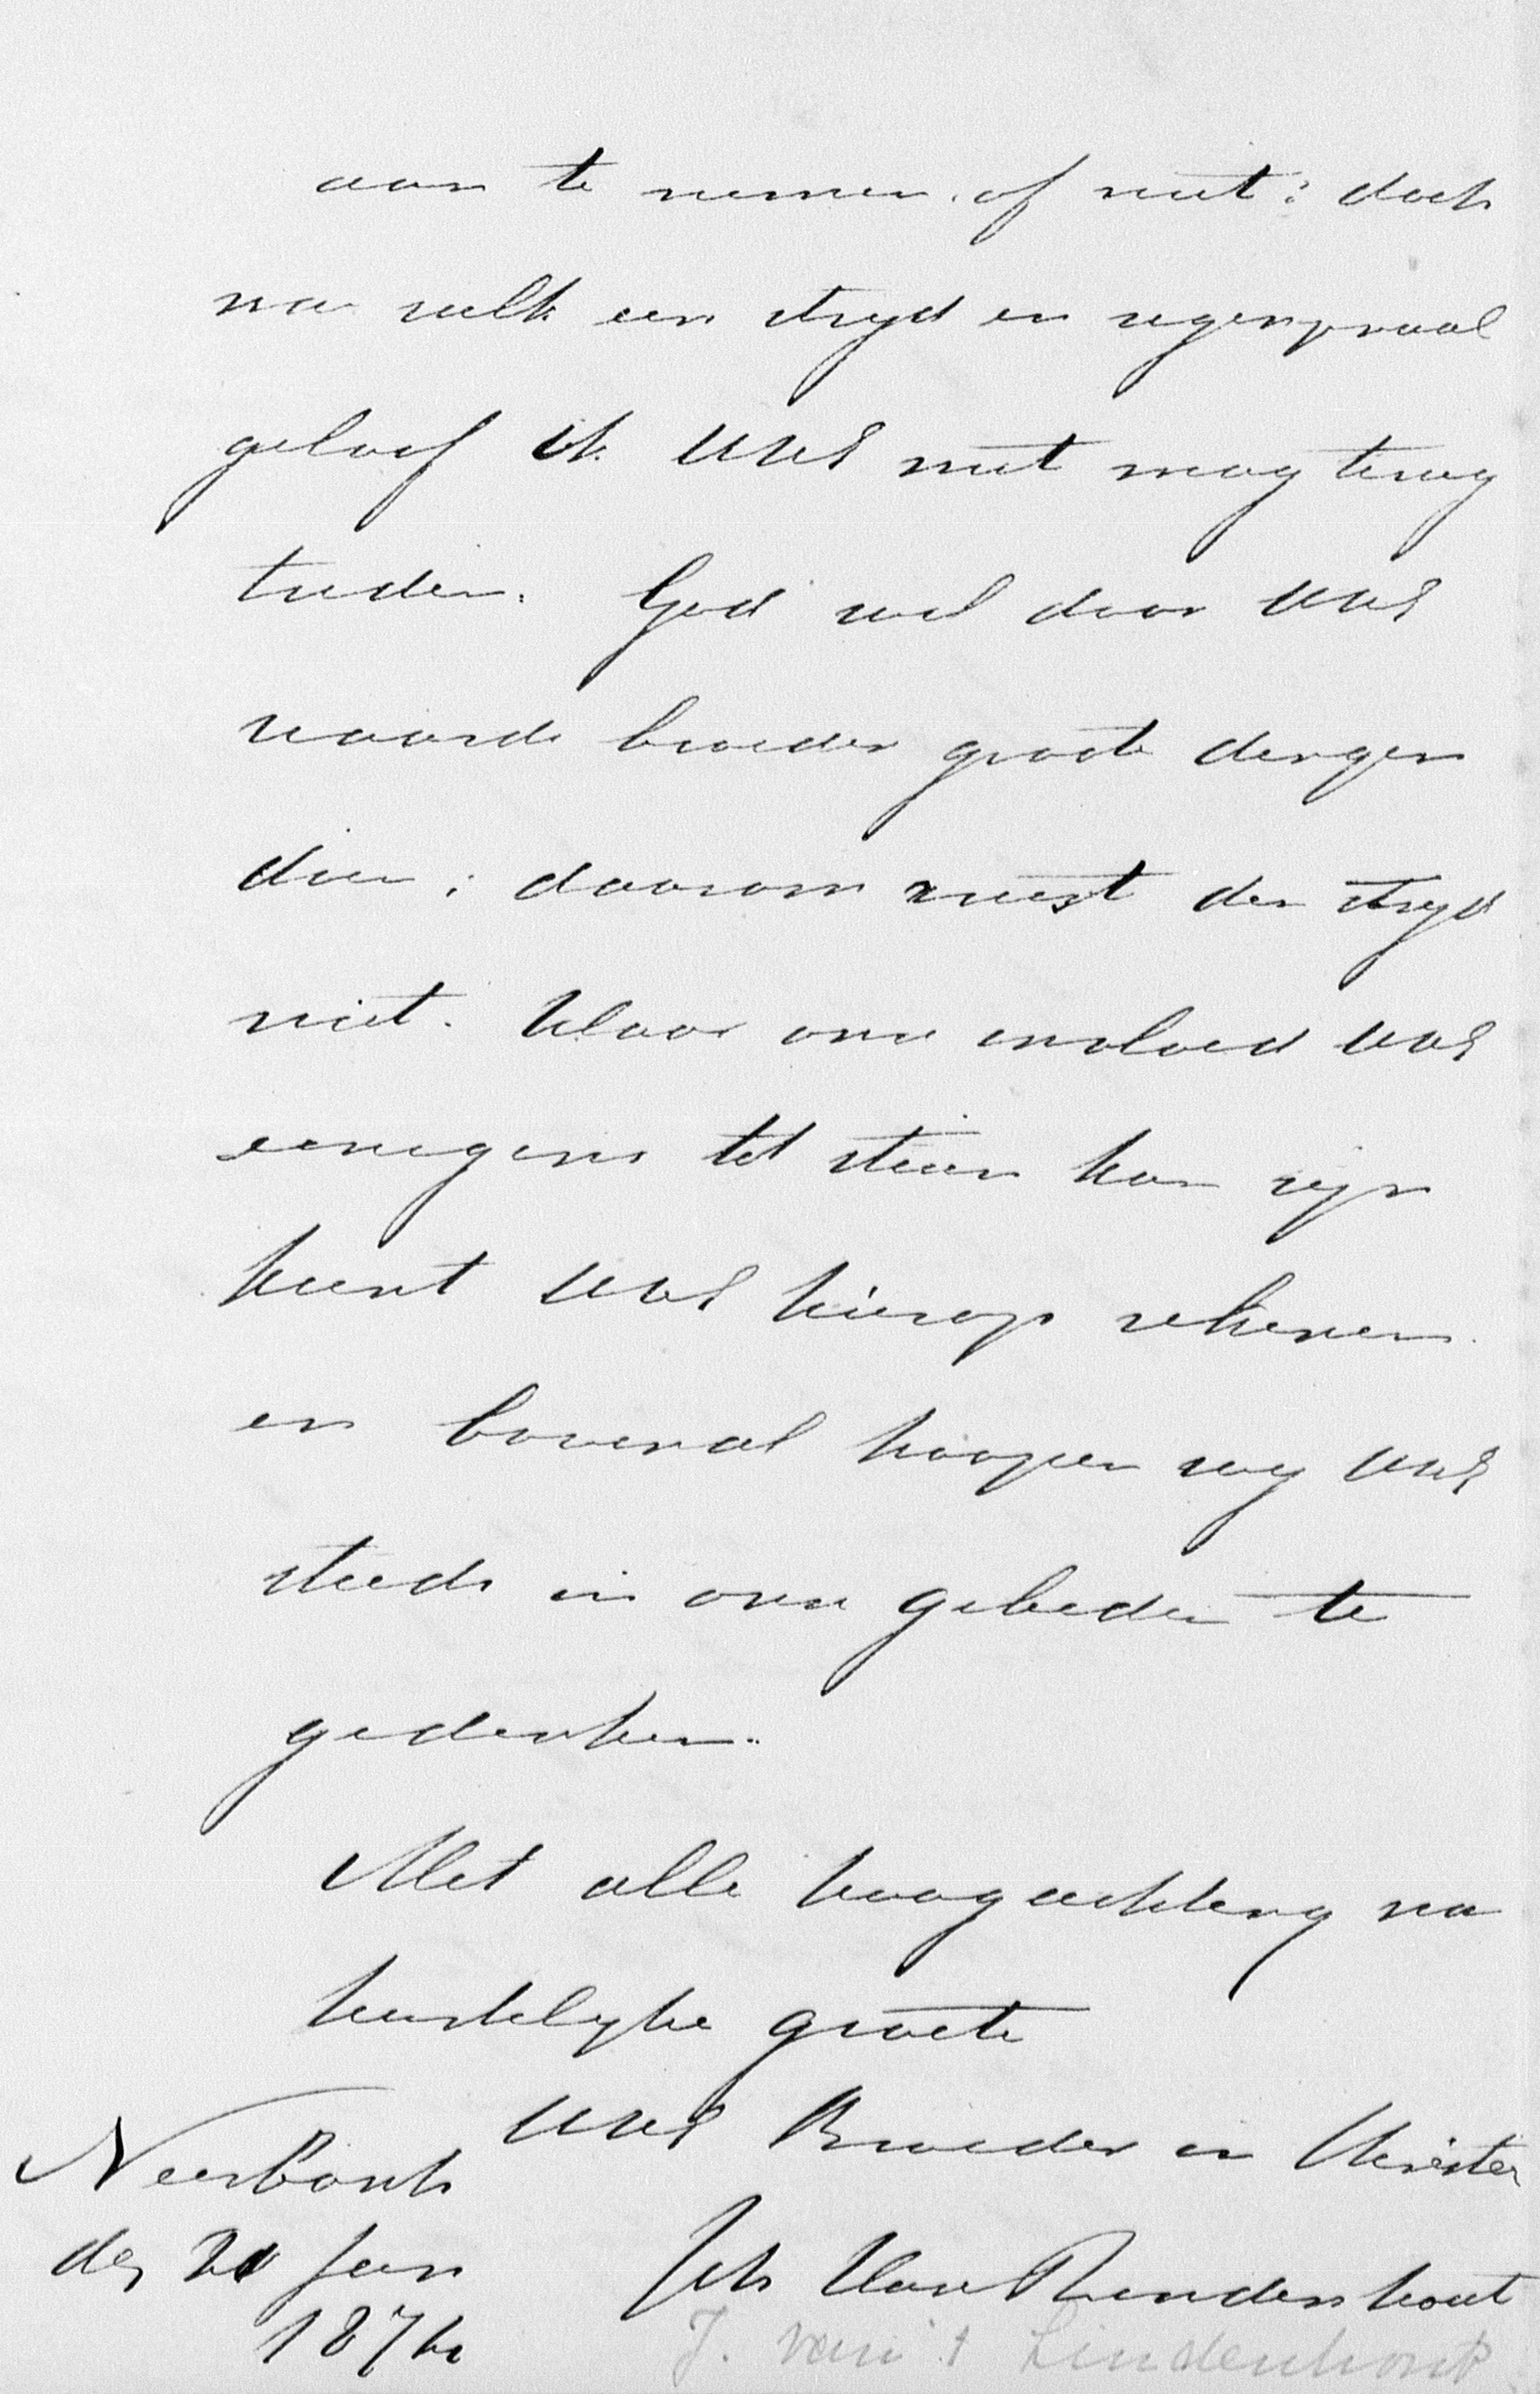 aan te nemen of niet: doch
na zulk een stryd en zegenpraal
geloof ik UWE niet mag terug
treden. God wil door UWE
waarde broeder groote dingen
doen; daarom vreest den stryd
niet. Waar onze invloed UWE
eenigzins tot steun kan zijn
kunt UWE hierop rekenen
en bovenal hoopen wy UWE
steeds in onze gebeden te
gedenken.
Met alle hoogachting na
hartelyke groete
UWE Broeder in Christus
Neerbosch
den 20 Jan
Joh Van 't Lindenhout
187
J. van 't Lindenhout